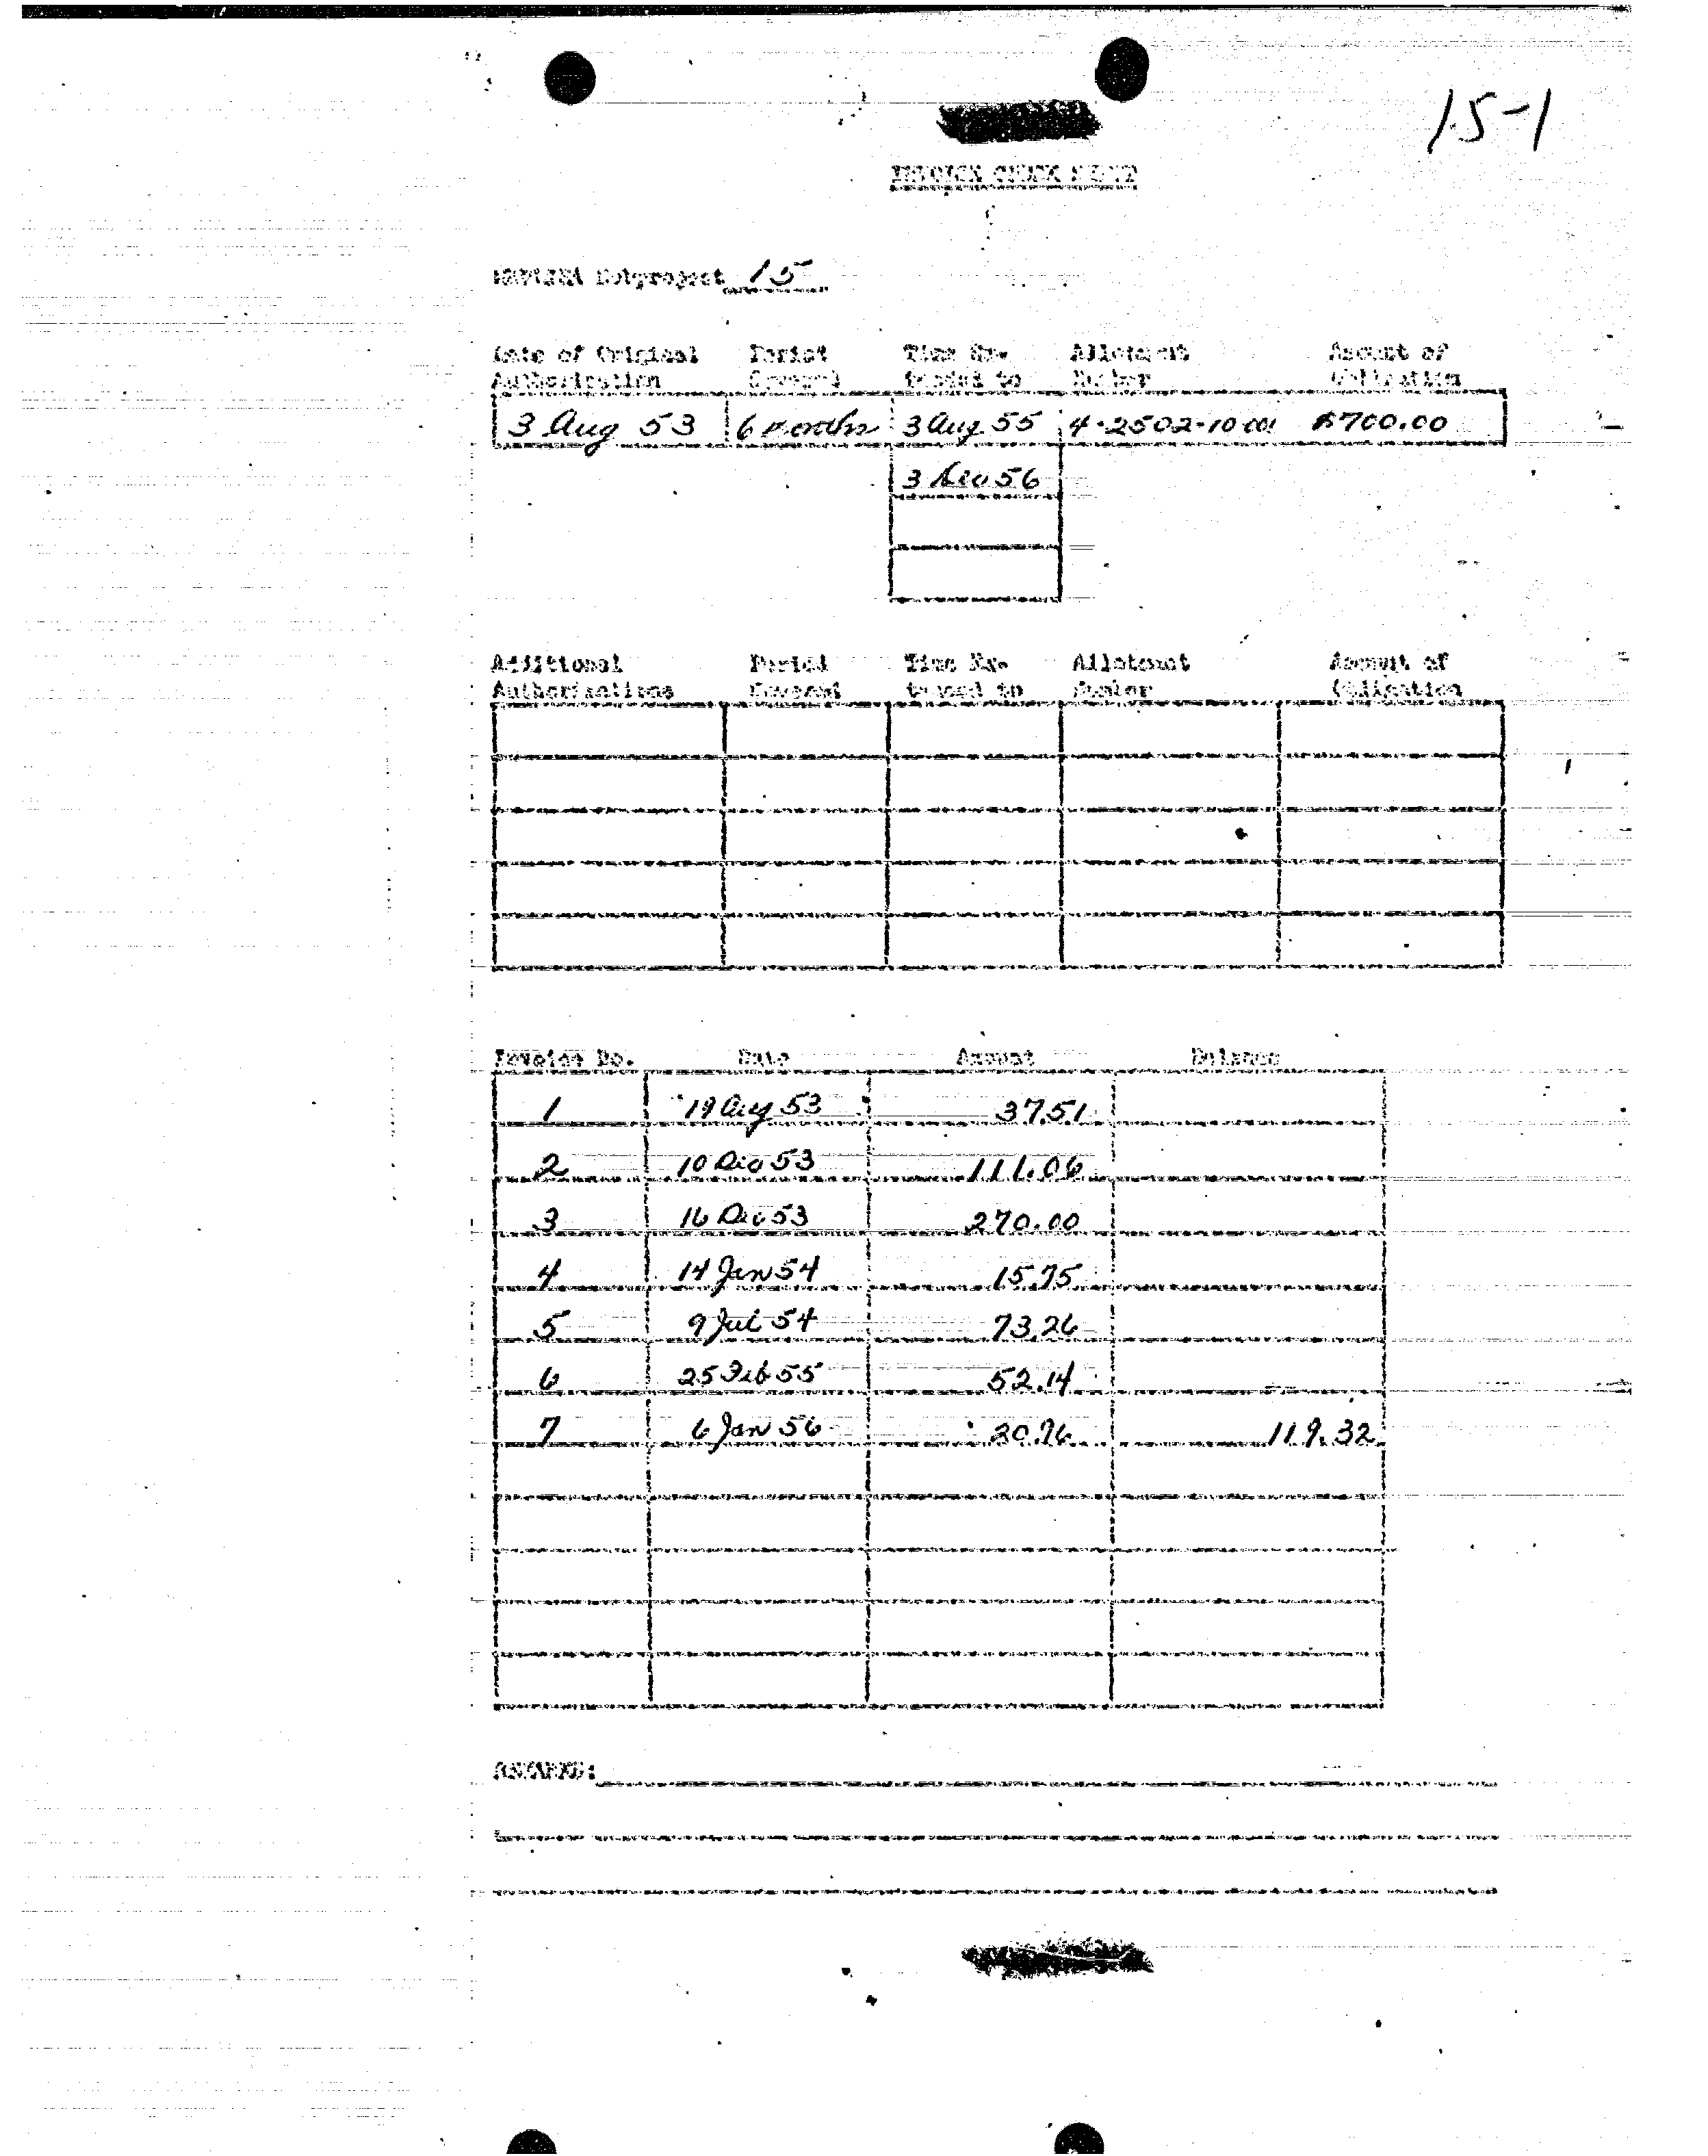 15-1
INVOICE CHECK SHEET
MKULTRA Subproject 15
Date of Original Period Time Ex- Allotment Amount of
Authorization Covered tended to Number Obligation
3 Aug 53 6 months 3 Aug 55 4-2502-10-001 $700.00
3 Dec 56
Additional Period Time Ex- Allotment Amount of
Authorizations Covered tended to Number Obligation
Invoice No. Date Amount Balance
1 19 Aug 53 37.51
2 10 Dec 53 111.06
3 16 Dec 53 270.00
4 14 Jan 54 15.75
5 9 Jul 54 73.26
6 25 Feb 55 52.14
7 6 Jan 56 20.96 119.32
REMARKS: